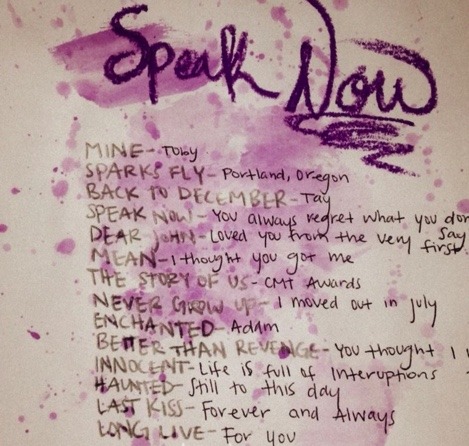 Speak Now
MINE- Toby
SPARKS FLY- Portland, Oregon
BACK TO DECEMBER- Tay
SPEAK NOW- You always regret what you don
say
DEAR JOHN- Loved you from the very first
MEAN- I thought you got me
THE STORY OF US- CMT Awards
NEVER GROW UP- I moved out in july
ENCHANTED- Adam
BETTER THAN REVENGE- You thought I
INNOCENT- Life is full of Interuptions
HAUNTED- Still to this day
LAST KISS- Forever and Always
LONG LIVE- For you